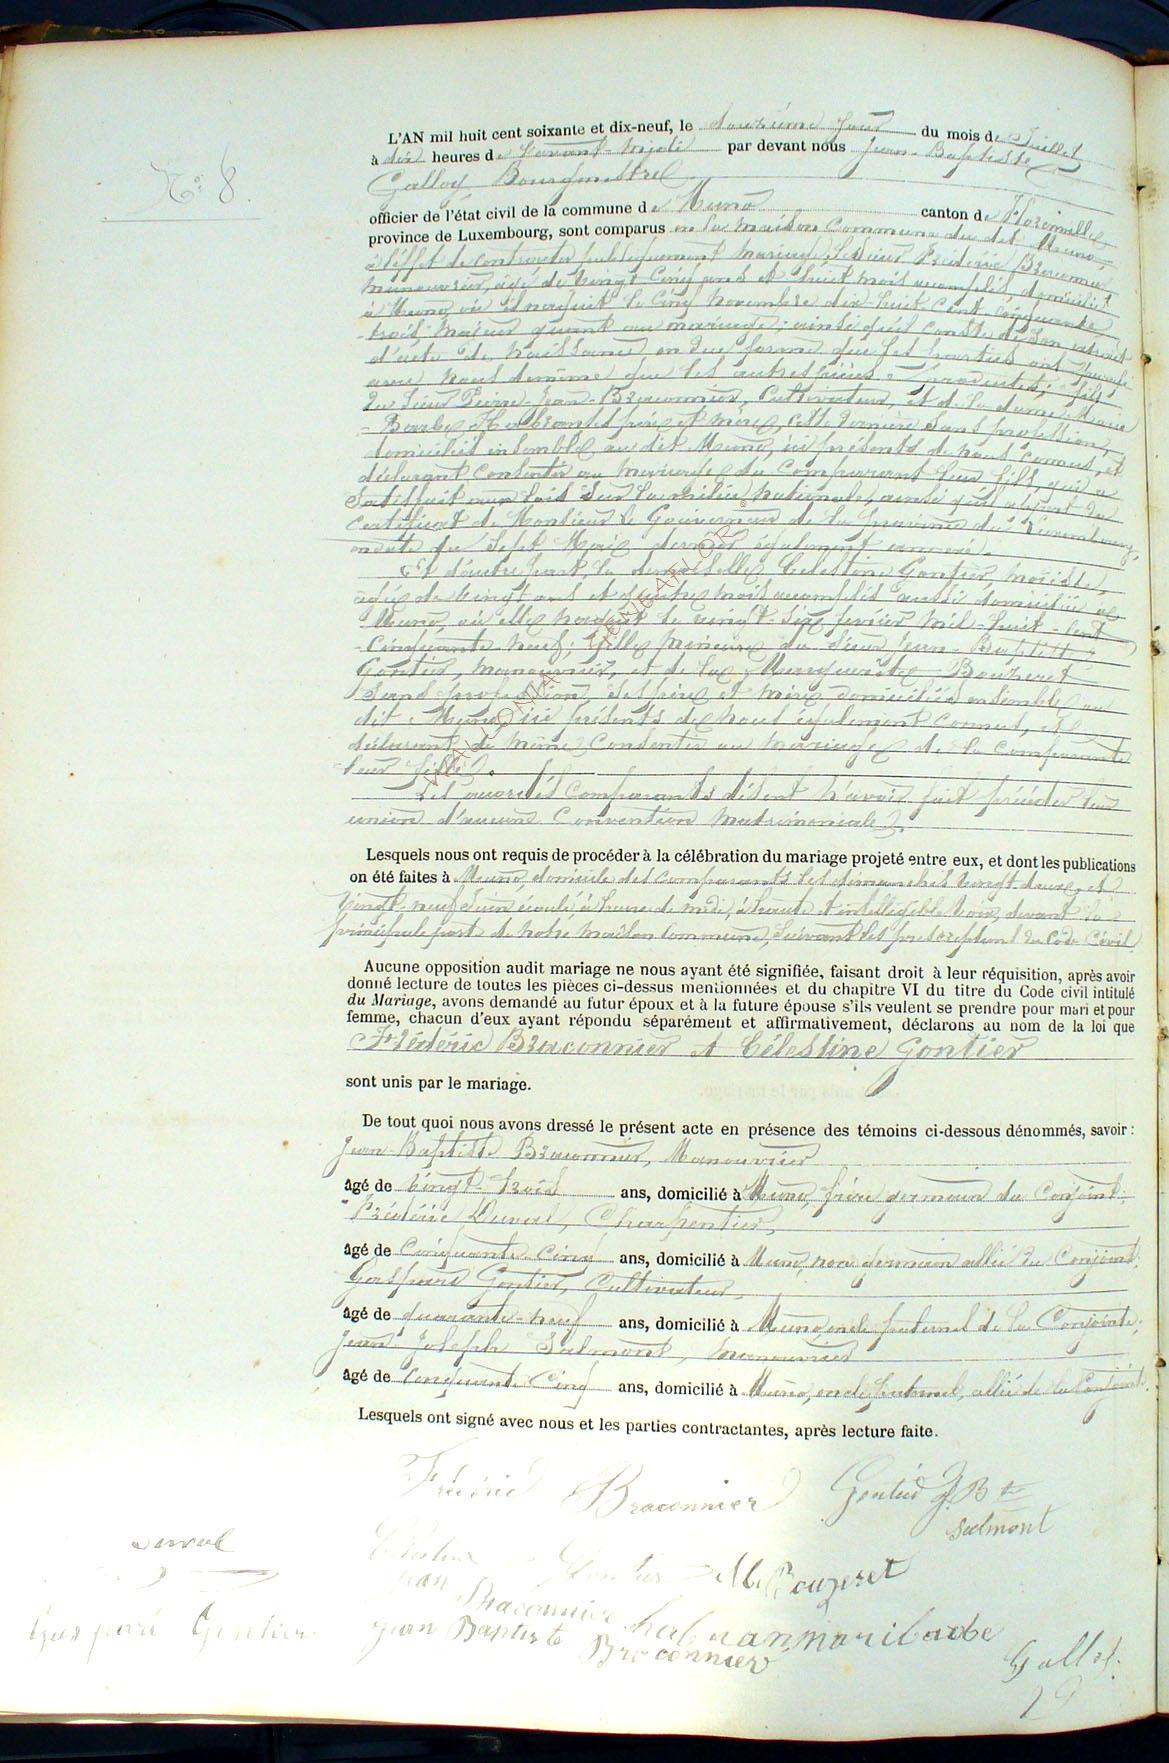 N.º 8.
L'AN mil huit cent soixante et dix-neuf, le douzième jour du mois de Juillet
à dix heures de l'avant-midi par devant nous Jean-Baptiste
Galloy Bourgmestre
officier de l'état civil de la commune de Muno canton de Florenville
province de Luxembourg, sont comparus en la maison commune du dit Muno,
à l'effet de contracter publiquement mariage, le sieur Frédéric Braconnier
manouvrier, âgé de vingt cinq ans et huit mois accomplis, domicilié
à Muno, où il naquit le cinq novembre dix huit cent cinquante
trois, majeur quant au mariage; ainsi qu'il conste de son extrait
d'acte de naissance en due forme que les parties ont
avec nous de même que les autres pièces produites; fils
du sieur Pierre-Jean-Braconnier, cultivateur, et de la dame Marie
Barbe ses père et mère, cette dernière sans profession,
domiciliés ensemble au dit Muno, ici présents de nous connus, et
déclarant consentir au mariage du comparant leur fils, qui a
satisfait aux lois sur la milice nationale, ainsi qu'il appert du
certificat de Monsieur le Gouverneur de la province de Luxembourg,
en date du sept Mai dernier également annexé.
Et d'autre part, la demoiselle Célestine Gontier, modiste,
âgée de vingt ans et quatre mois accomplis aussi domiciliée à
Muno, où elle naquit le vingt-six février mil-huit-cent
cinquante-neuf; fille mineure du sieur Jean-Baptiste
Gontier, manouvrier, et de la Marguerite Bouzeret
sans profession, ses père et mère, domiciliés ensemble au
dit Muno ici présents de nous également connus, et
déclarant de même consentir au mariage de la comparante
leur fille.
Les quels comparants disent n'avoir fait précéder leur
union d'aucune convention matrimoniale.
Lesquels nous ont requis de procéder à la célébration du mariage projeté entre eux, et dont les publications
on été faites à Muno, domicile des comparants les dimanches vingt-deux et
vingt-neuf Juin écoulé, à l'heure de midi, à haute et intelligible voix, devant la
principale porte de notre maison commune, suivant les prescriptions du Code Civil
Aucune opposition audit mariage ne nous ayant été signifiée, faisant droit à leur réquisition, après avoir
donné lecture de toutes les pièces ci-dessus mentionnées et du chapitre VI du titre du Code civil intitulé
du Mariage, avons demandé au futur époux et à la future épouse s'ils veulent se prendre pour mari et pour
femme, chacun d'eux ayant répondu séparément et affirmativement, déclarons au nom de la loi que
Frédéric Braconnier et Célestine Gontier
sont unis par le mariage.
De tout quoi nous avons dressé le présent acte en présence des témoins ci-dessous dénommés, savoir :
Jean-Baptiste Braconnier, Manouvrier
âgé de vingt-trois ans, domicilié à Muno, frère germain du Conjoint
Frédéric Duval, Charpentier,
âgé de Cinquante-Cinq ans, domicilié à Muno, germain allié du Conjoint.
Gaspard Gontier, Cultivateur,
âgé de quarante-neuf ans, domicilié à Muno, oncle paternel de la Conjointe,
Jean-Joseph Salmont, manouvrier
âgé de Cinquante-Cinq ans, domicilié à Muno, oncle paternel, allié de la Conjointe.
Lesquels ont signé avec nous et les parties contractantes, après lecture faite.
Frédéric Braconnier Gontier J Bte
Salmont
Duval
Gontier M Bouzeret
Jean Braconnier
Gaspard Gontier Jean Baptiste Braconnier
Galloy
WALLONIA GENCATLOR